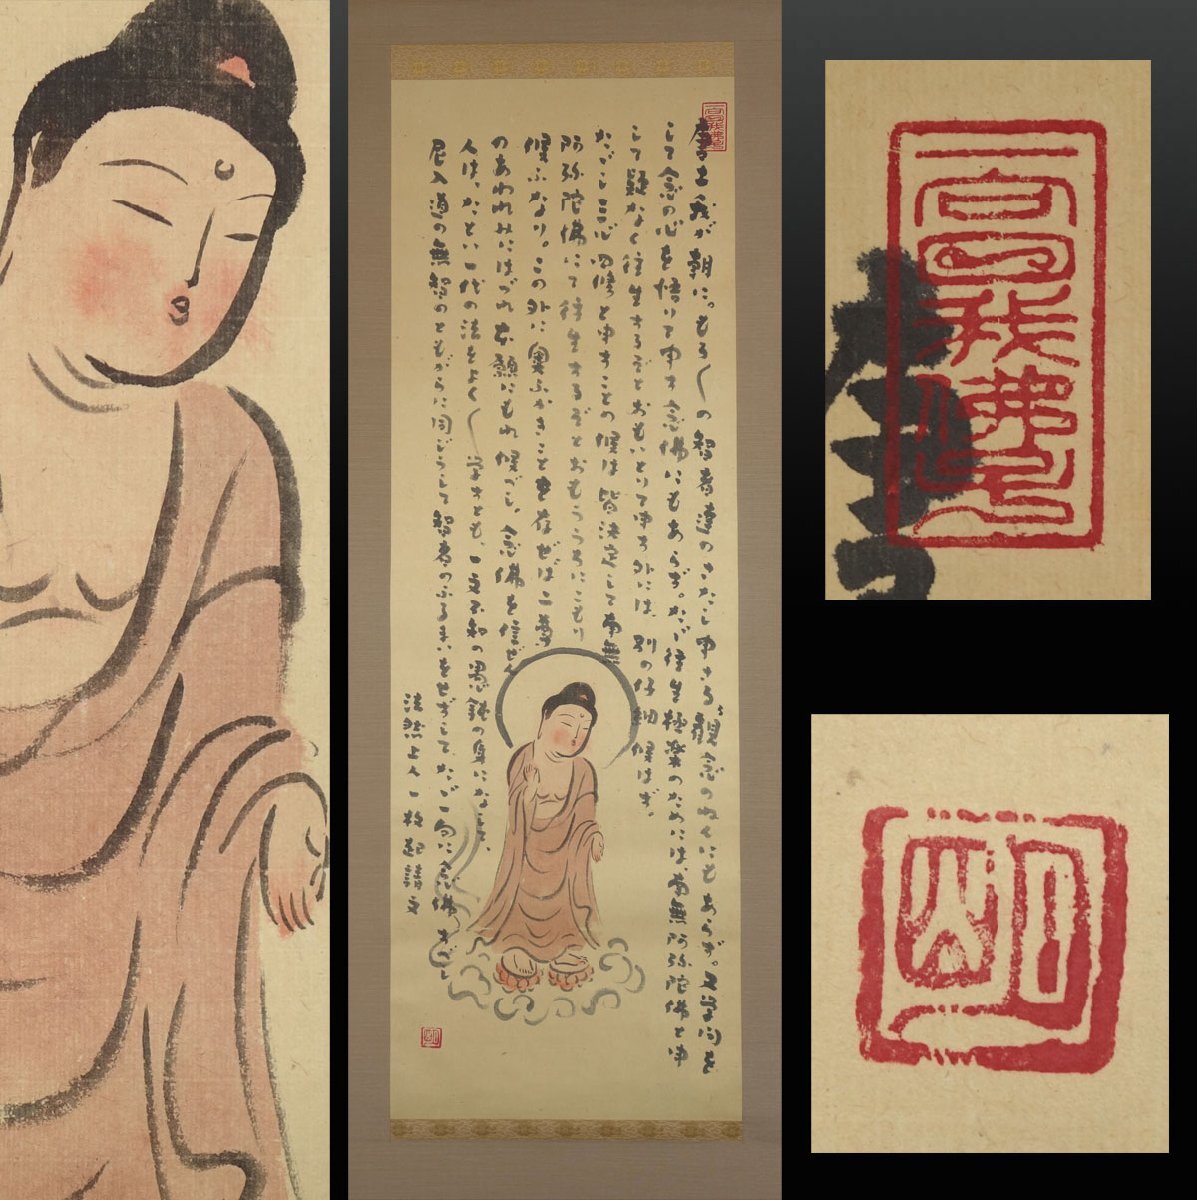 唐土我が朝に。もろ〱の智者達のさたし申さるゝ觀念のねんにもあらず。又学問を
して念の心を悟りて申す念佛にもあらず。たゞ往生極楽のためには、南無阿弥陀佛と申
して疑なく往生するぞとおもいとりて申す外には、別の仔細候はず。
たゞし三心四修と申すことの候は皆決定して南無
阿弥陀佛にて往生するぞとおもううちにこもり
候ふなり。この外に奥ふかきことを存ぜば二尊
のあわれみにはづれ本願にもれ候べし、念佛を信ぜん
人は、たとい一代の法をよく〱学すとも、一文不知の愚鈍の身になして、
尼入道の無智のともがらに同じうして智者のふるまいをせずして、たゞ一向に念佛すべし
法然上人一枚起請文